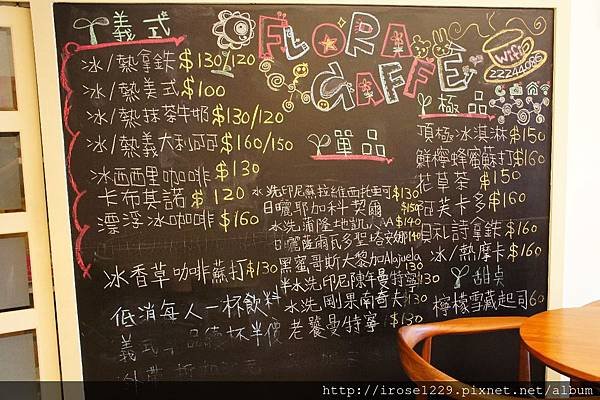 義式
冰/熱拿鐵 $130/120
冰/熱美式 $100
冰/熱抹茶牛奶 $130/120
冰/熱義大利可可 $160/150
冰西西里咖啡 $130
卡布基諾 $120
漂浮冰咖啡 $160
冰香草咖啡蘇打 $130
低消每人一杯飲料
FLORA
CAFFÉ
Wifi
22244086
單品
水洗印尼蘇拉維西托拉可 $130
日曬耶加科契爾 $150
水洗蒲隆地凱人A $140
日曬薩爾瓦多聖塔茲娜 140
黑蜜哥斯大黎加Alajuela 130
半水洗印尼陳年曼特寧 130
水洗剛果南奇夫 130
老饕曼特寧 $130
極品
頂極冰淇淋 $150
鮮檸蜂蜜蘇打 $160
花草茶 $150
阿芙卡多 $160
貝禮詩拿鐵 $160
冰/熱摩卡 $160
甜點
檸檬雪藏起司 60
http://irose1229.pixnet.net/album